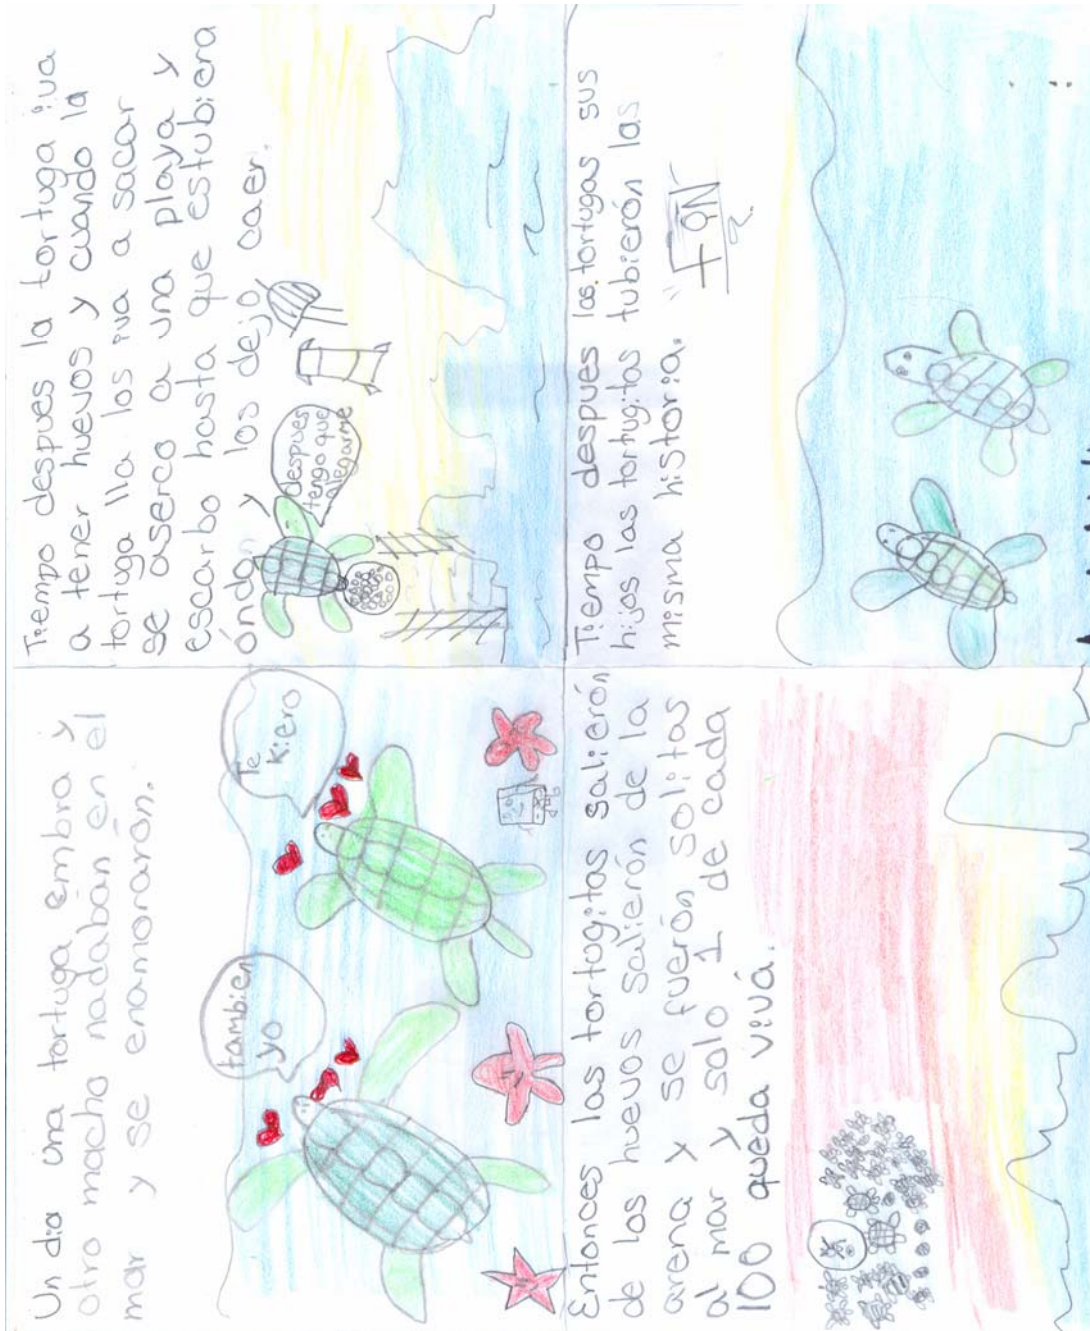 Un dia una tortuga embra y
otro macho nadabán en el
mar y se enamoraron.
Te
kiero
tambien
yo
Tiempo despues la tortuga iva
a tener huevos y cuando la
tortuga lla los iva a sacar
se aserco a una playa y
escarbo hasta que estubiera
óndo y los dejo caer.
despues
tengo que
alegarme
Entonces las tortugitas salierón
de los huevos salierón de la
arena y se fuerón solitas
al mar y solo 1 de cada
100 quéda vivá.
Tiempo despues las tortugas sus
hijos las tortugitas tubierón las
misma historia.
FiN